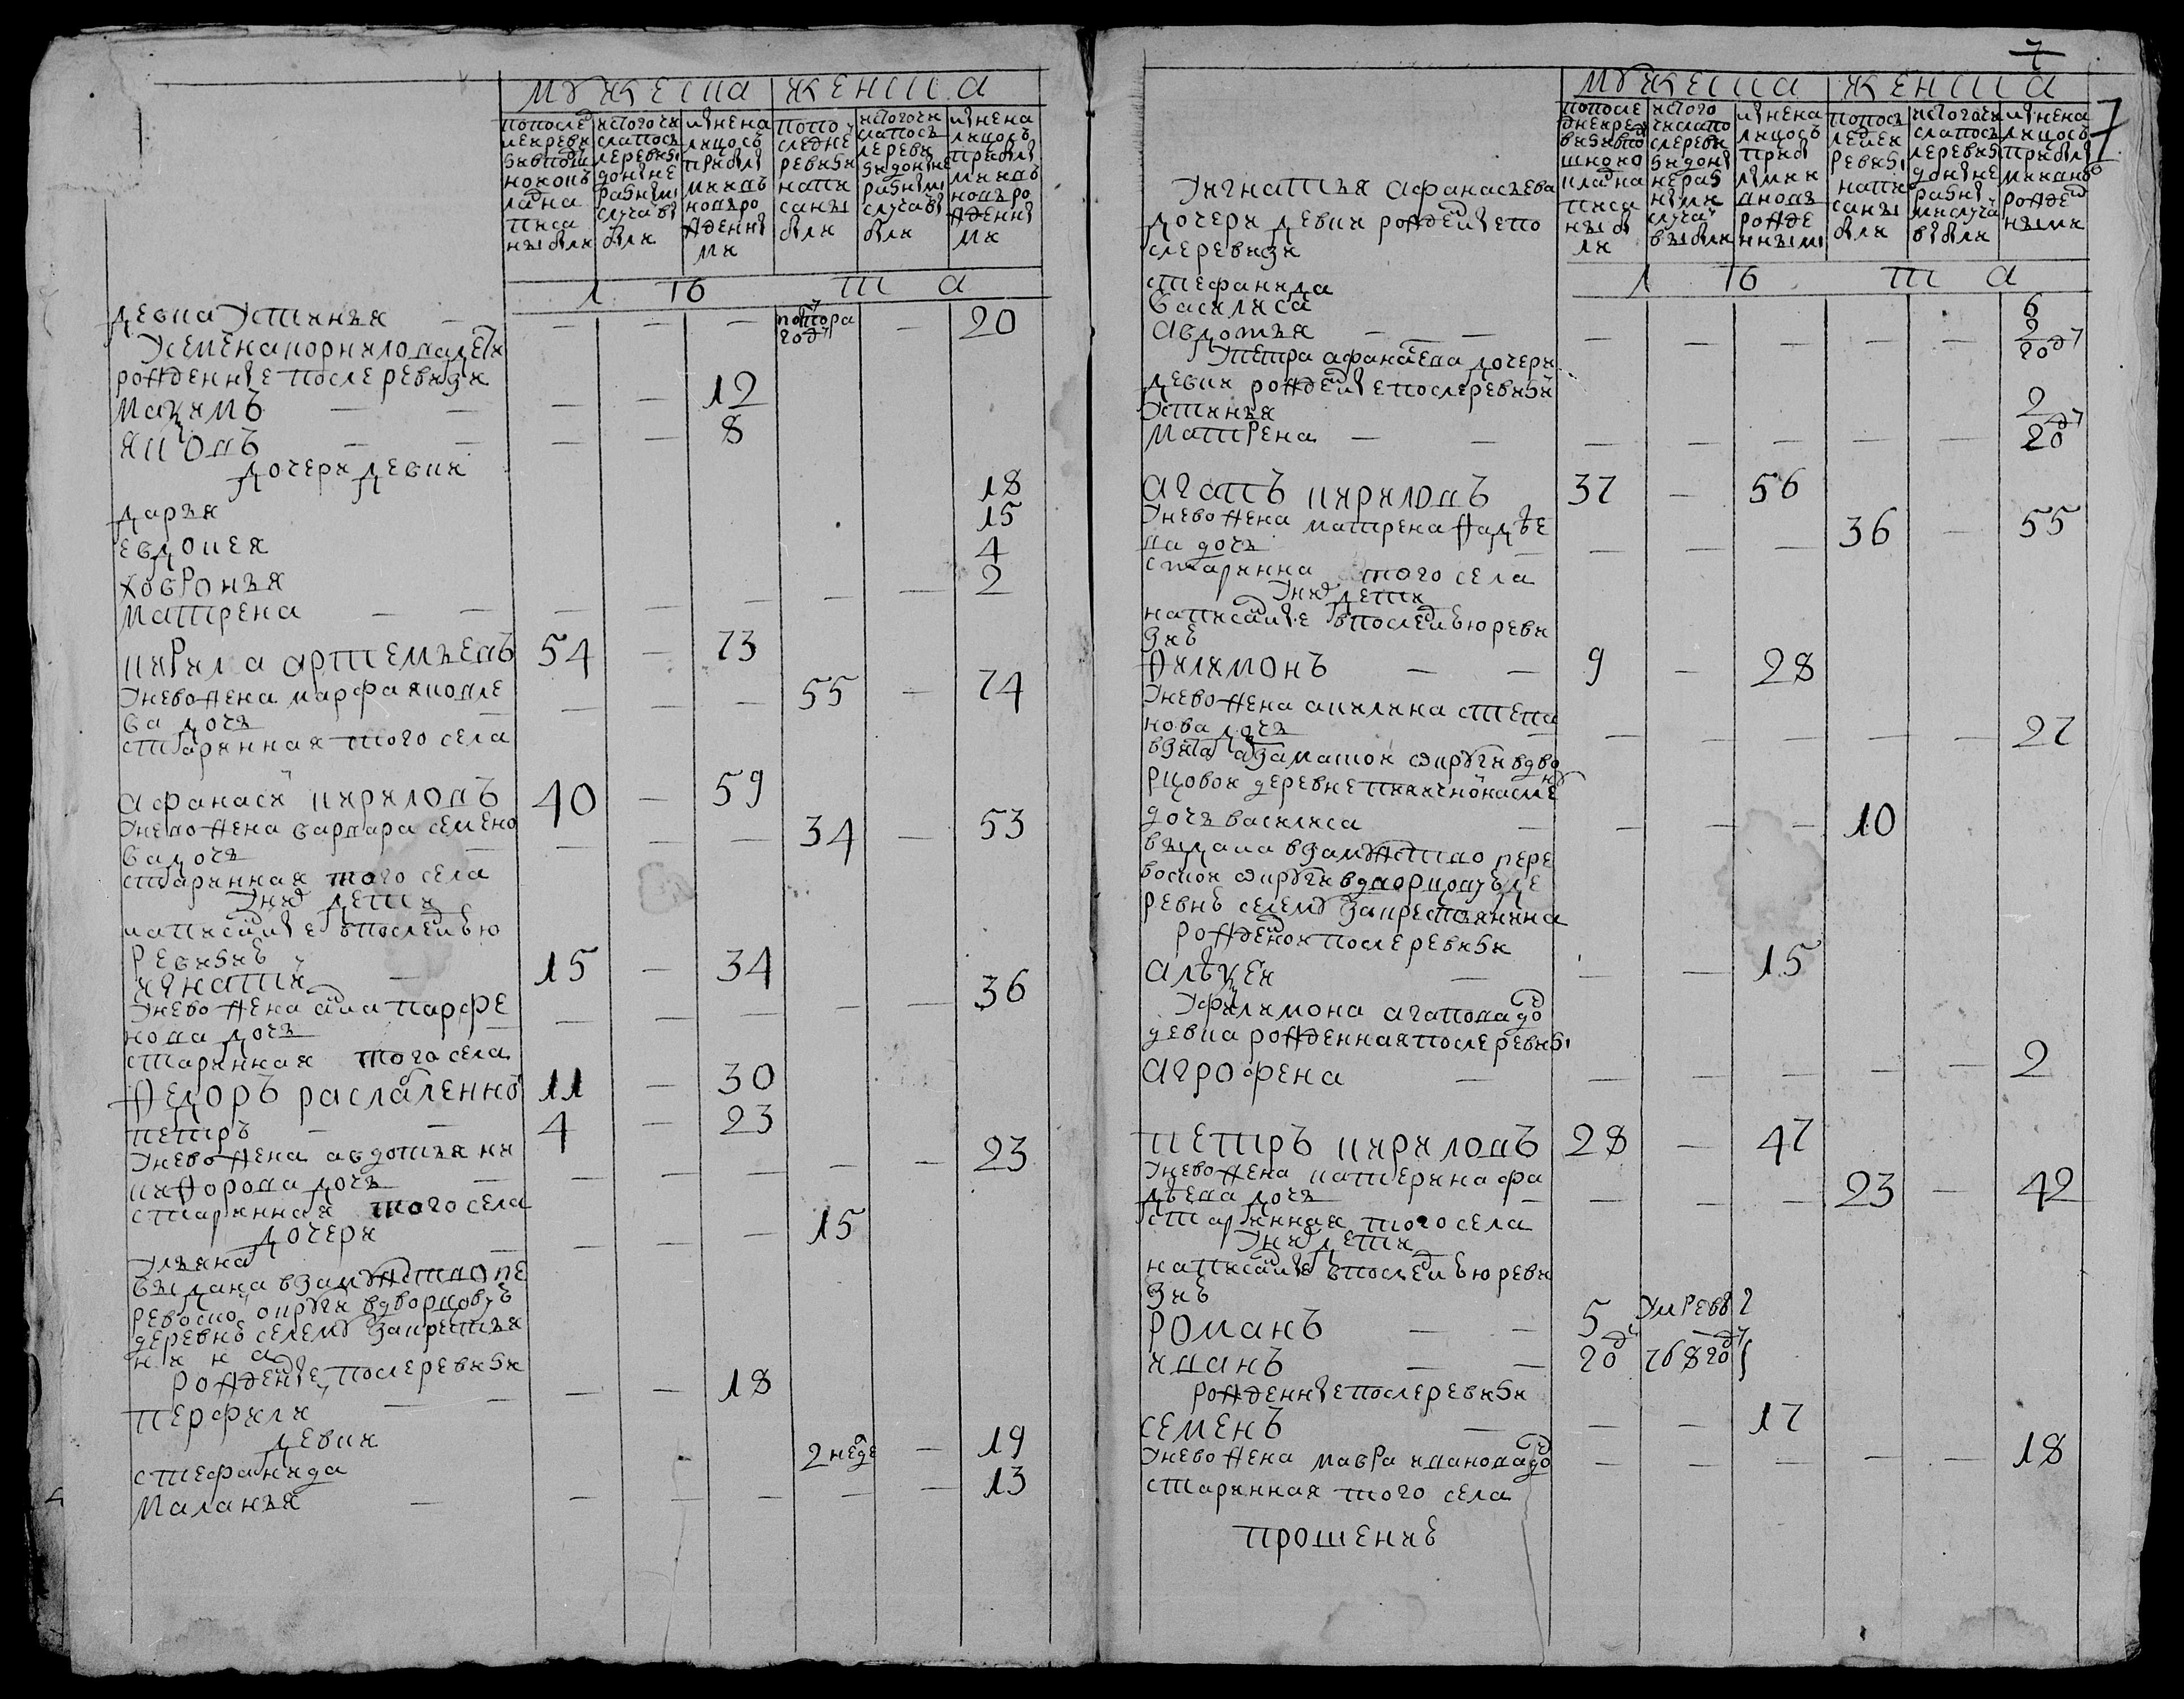 мужеска женска
попослед ней реви зии вподуш номокъ ладъ на писа ны были
ис того чи сла посъ ле ревизи доныне разными случаи были
и ныне на лицо съ прибы лыми и въ новь ро жденны ми
попо следне ревизи напи саны были
ис того чи сла посъ ле реви зи доныне разными случаи были
и ныне на лицо съ прибы лыми и въ новь ро жденны ми
лѣта
девка Устинья — — — — полтора году — 20
У семена корнилова дети
рожденные после ревизи
макимъ — — — — 12
яковъ — — — — 8
дочери девки
дарья 18
евдокея 15
ховронья 4
матрена — — — — — — — 2
кирила артемьевъ 54 — 73
У нево жена марфа яковле
ва дочь — — — — 55 — 74
старинная того села
афанасей кириловъ 40 — 59
У нево жена варвара семено
ва дочь — — — — 34 — 53
старинная того села
У них дети
написанные впоследнюю
ревизию
игнатий — 15 — 34
У нево жена анна парфе
нова дочь — — — — — — 36
старинная того села
Федоръ раслабленной 11 — 30
петръ — — 4 — 23
У нево жена авдотья ни
кифорова дочь — — — — — — 23
старинная того села
дочери
Ульяна — — — — 15
выдана взамужство пе
ревоско округи вдворцовую
деревню селему за крестья
ни на
рожденные после ревизи
перфилий — — — — 18
девки
стефанида 2 неде — 19
маланья — — — — — — 13
7
7
мужеска женска
попосле дней реви зии впо душномо кладъ на писа ны бы ли
ис того числа по сле реви зи доны не раз ными случаи выбыли
и ныне на лицо съ прибы лыми и вновь рожде нными
попось ледней ревизи напи саны были
ис того чи сла посъ ле ревизи доныне разны ми случаи были
и ныне на лицо съ прибылы ми и внов рожден ными
лѣта
У игнатья афанасьева
дочери девки рожденные по
сле ревизи
стефанида
василиса 6
авдотья — — — — — — — — 2 году
У петра афанасева дочери
девки рожденные после ревизи
Устинья 2
матрена — — — — — — — — году
агапъ кириловъ 37 — 56
У нево жена матрена фадѣе
ва дочь — — — — 36 — 55
старинна того села
У них дети
написанные впоследнюю реви
зию
Филимонъ — — 9 — 28
У нево жена акилина степа
нова дочь — — — — — — — 27
взята арзамаской округи вдво
рцовой деревне
дочь василиса — — — — 10
выдана взамужство пере
воской округи вдворцовую де
ревню селему за крестьянина
рожденой после ревизи
алѣксей — — — 15
У филимона агапова до
девка рожденная после ревизи
агрофена — — — — — — 2
петръ кириловъ 28 — 47
У нево жена катерина фа
дѣева дочь — — — — 23 — 42
старинная того села
У них дети
написанные впоследнюю реви
зию
романъ — — 5 умре в 7
иванъ — — году 768 году
рожденные после ревизи
семенъ — — — 17
У нево жена мавра иванова до — — — — — 18
старинная того села
прошение